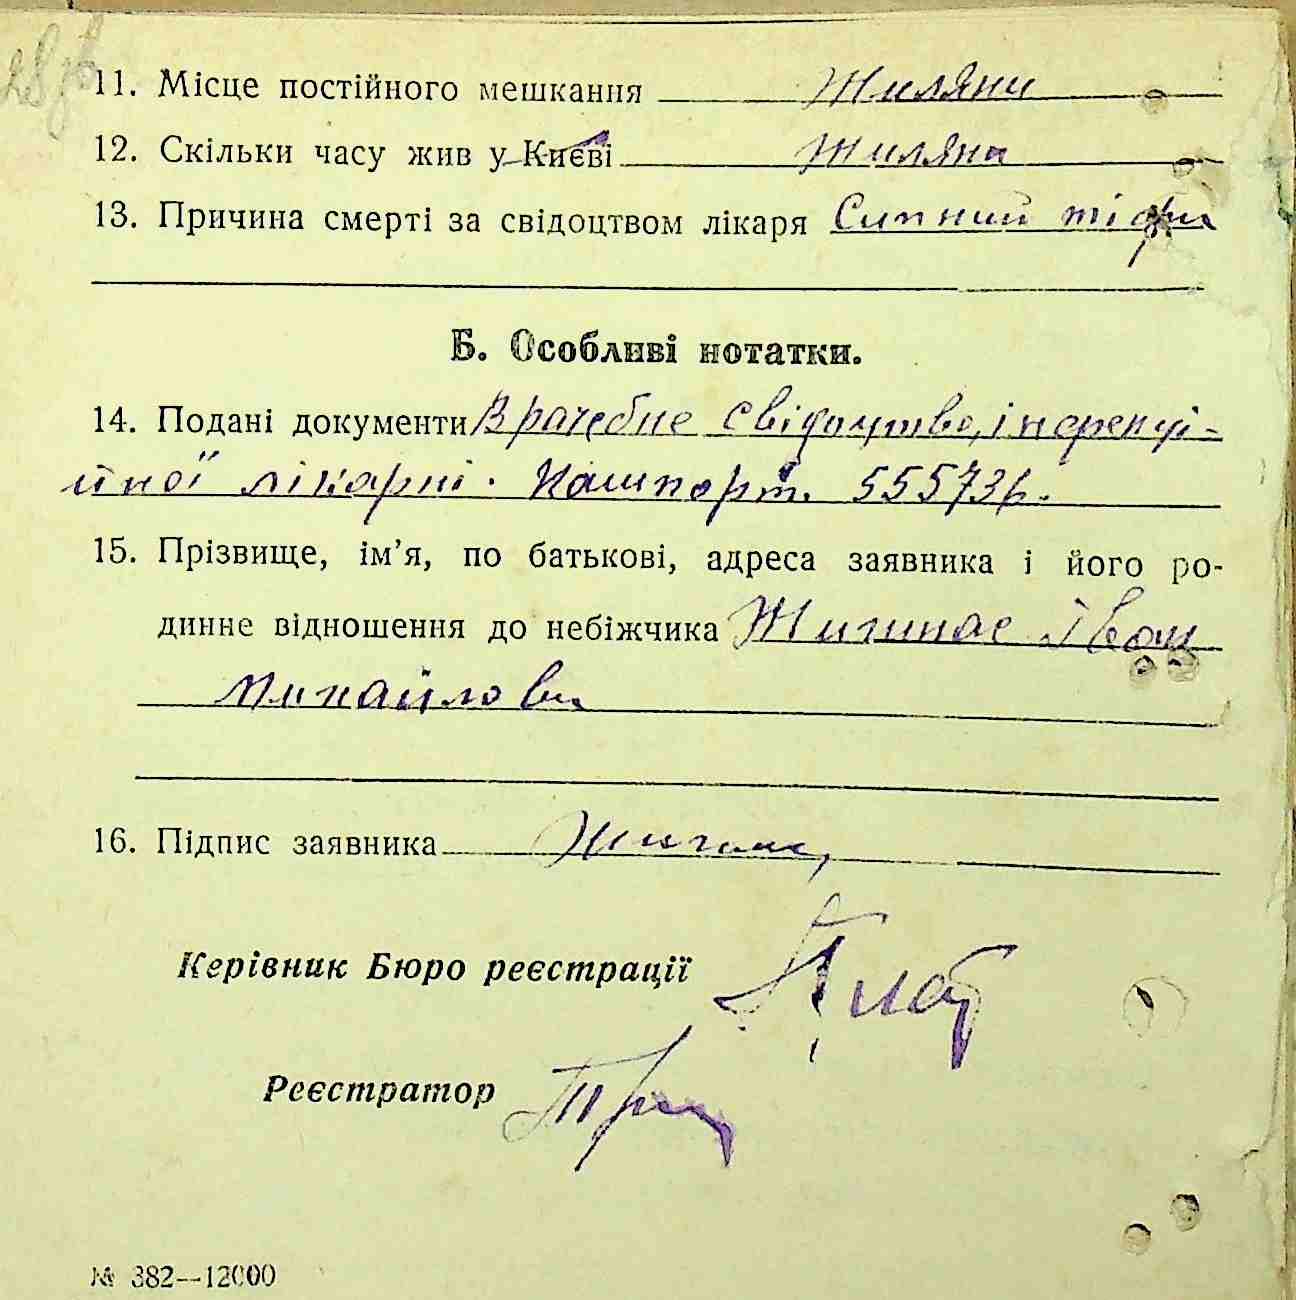 28зв
11. Місце постійного мешкання Жиляни
12. Скільки часу жив у Києві Жиляна
13. Причина смерті за свідоцтвом лікаря Сипний тіфи
Б. Особливі нотатки.
14. Подані документи Врачебне свідоцтво, інфекці-
йної лікарні. Пашпорт. 555736.
15. Прізвище, ім’я, по батькові, адреса заявника і його ро-
динне відношення до небіжчика Іван
Михайлови
16. Підпис заявника
Керівник Бюро реєстрації
Реєстратор
№ 382--12000